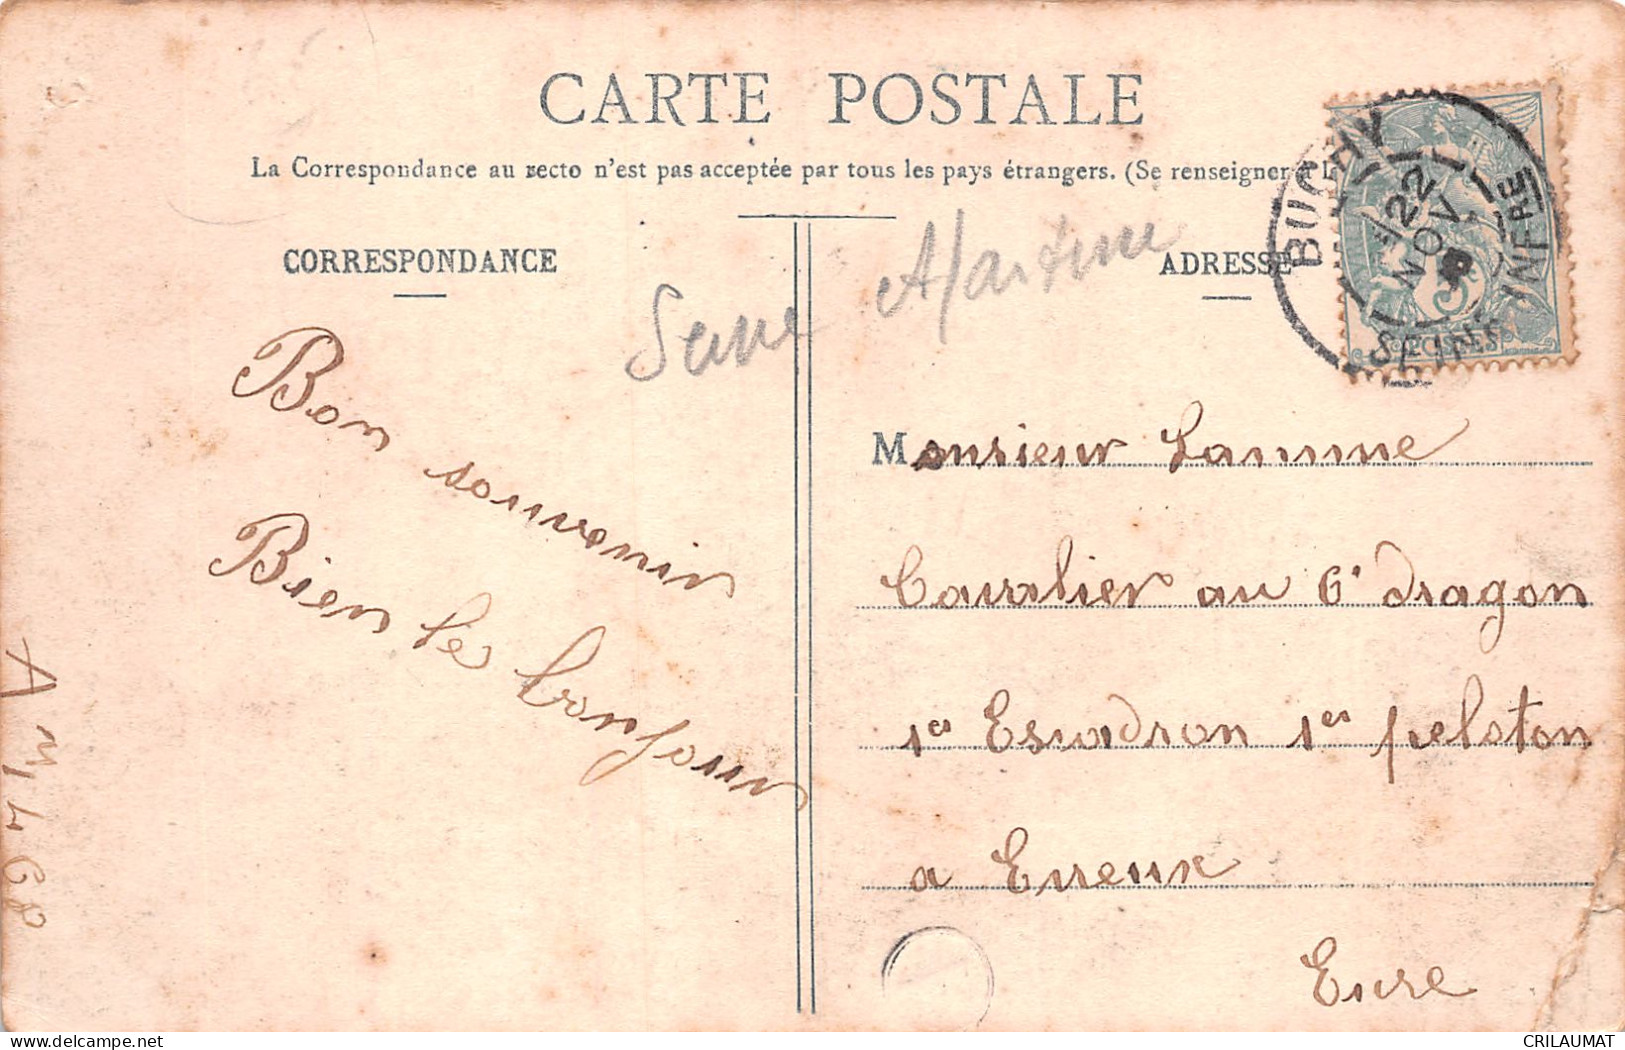 CARTE POSTALE
La Correspondance au recto n'est pas acceptée par tous les pays étrangers. (Se renseigner à l
CORRESPONDANCE
ADRESSE
BUCHY
22
NOV
SEINE INFRE
5
POSTES
Seine Maritime
Bon souvenir
Bien le bonjour
Monsieur Lamme
Cavalier au 6e dragon
1er Escadron 1er peloton
a Evreux
Eure
CRILAUMAT